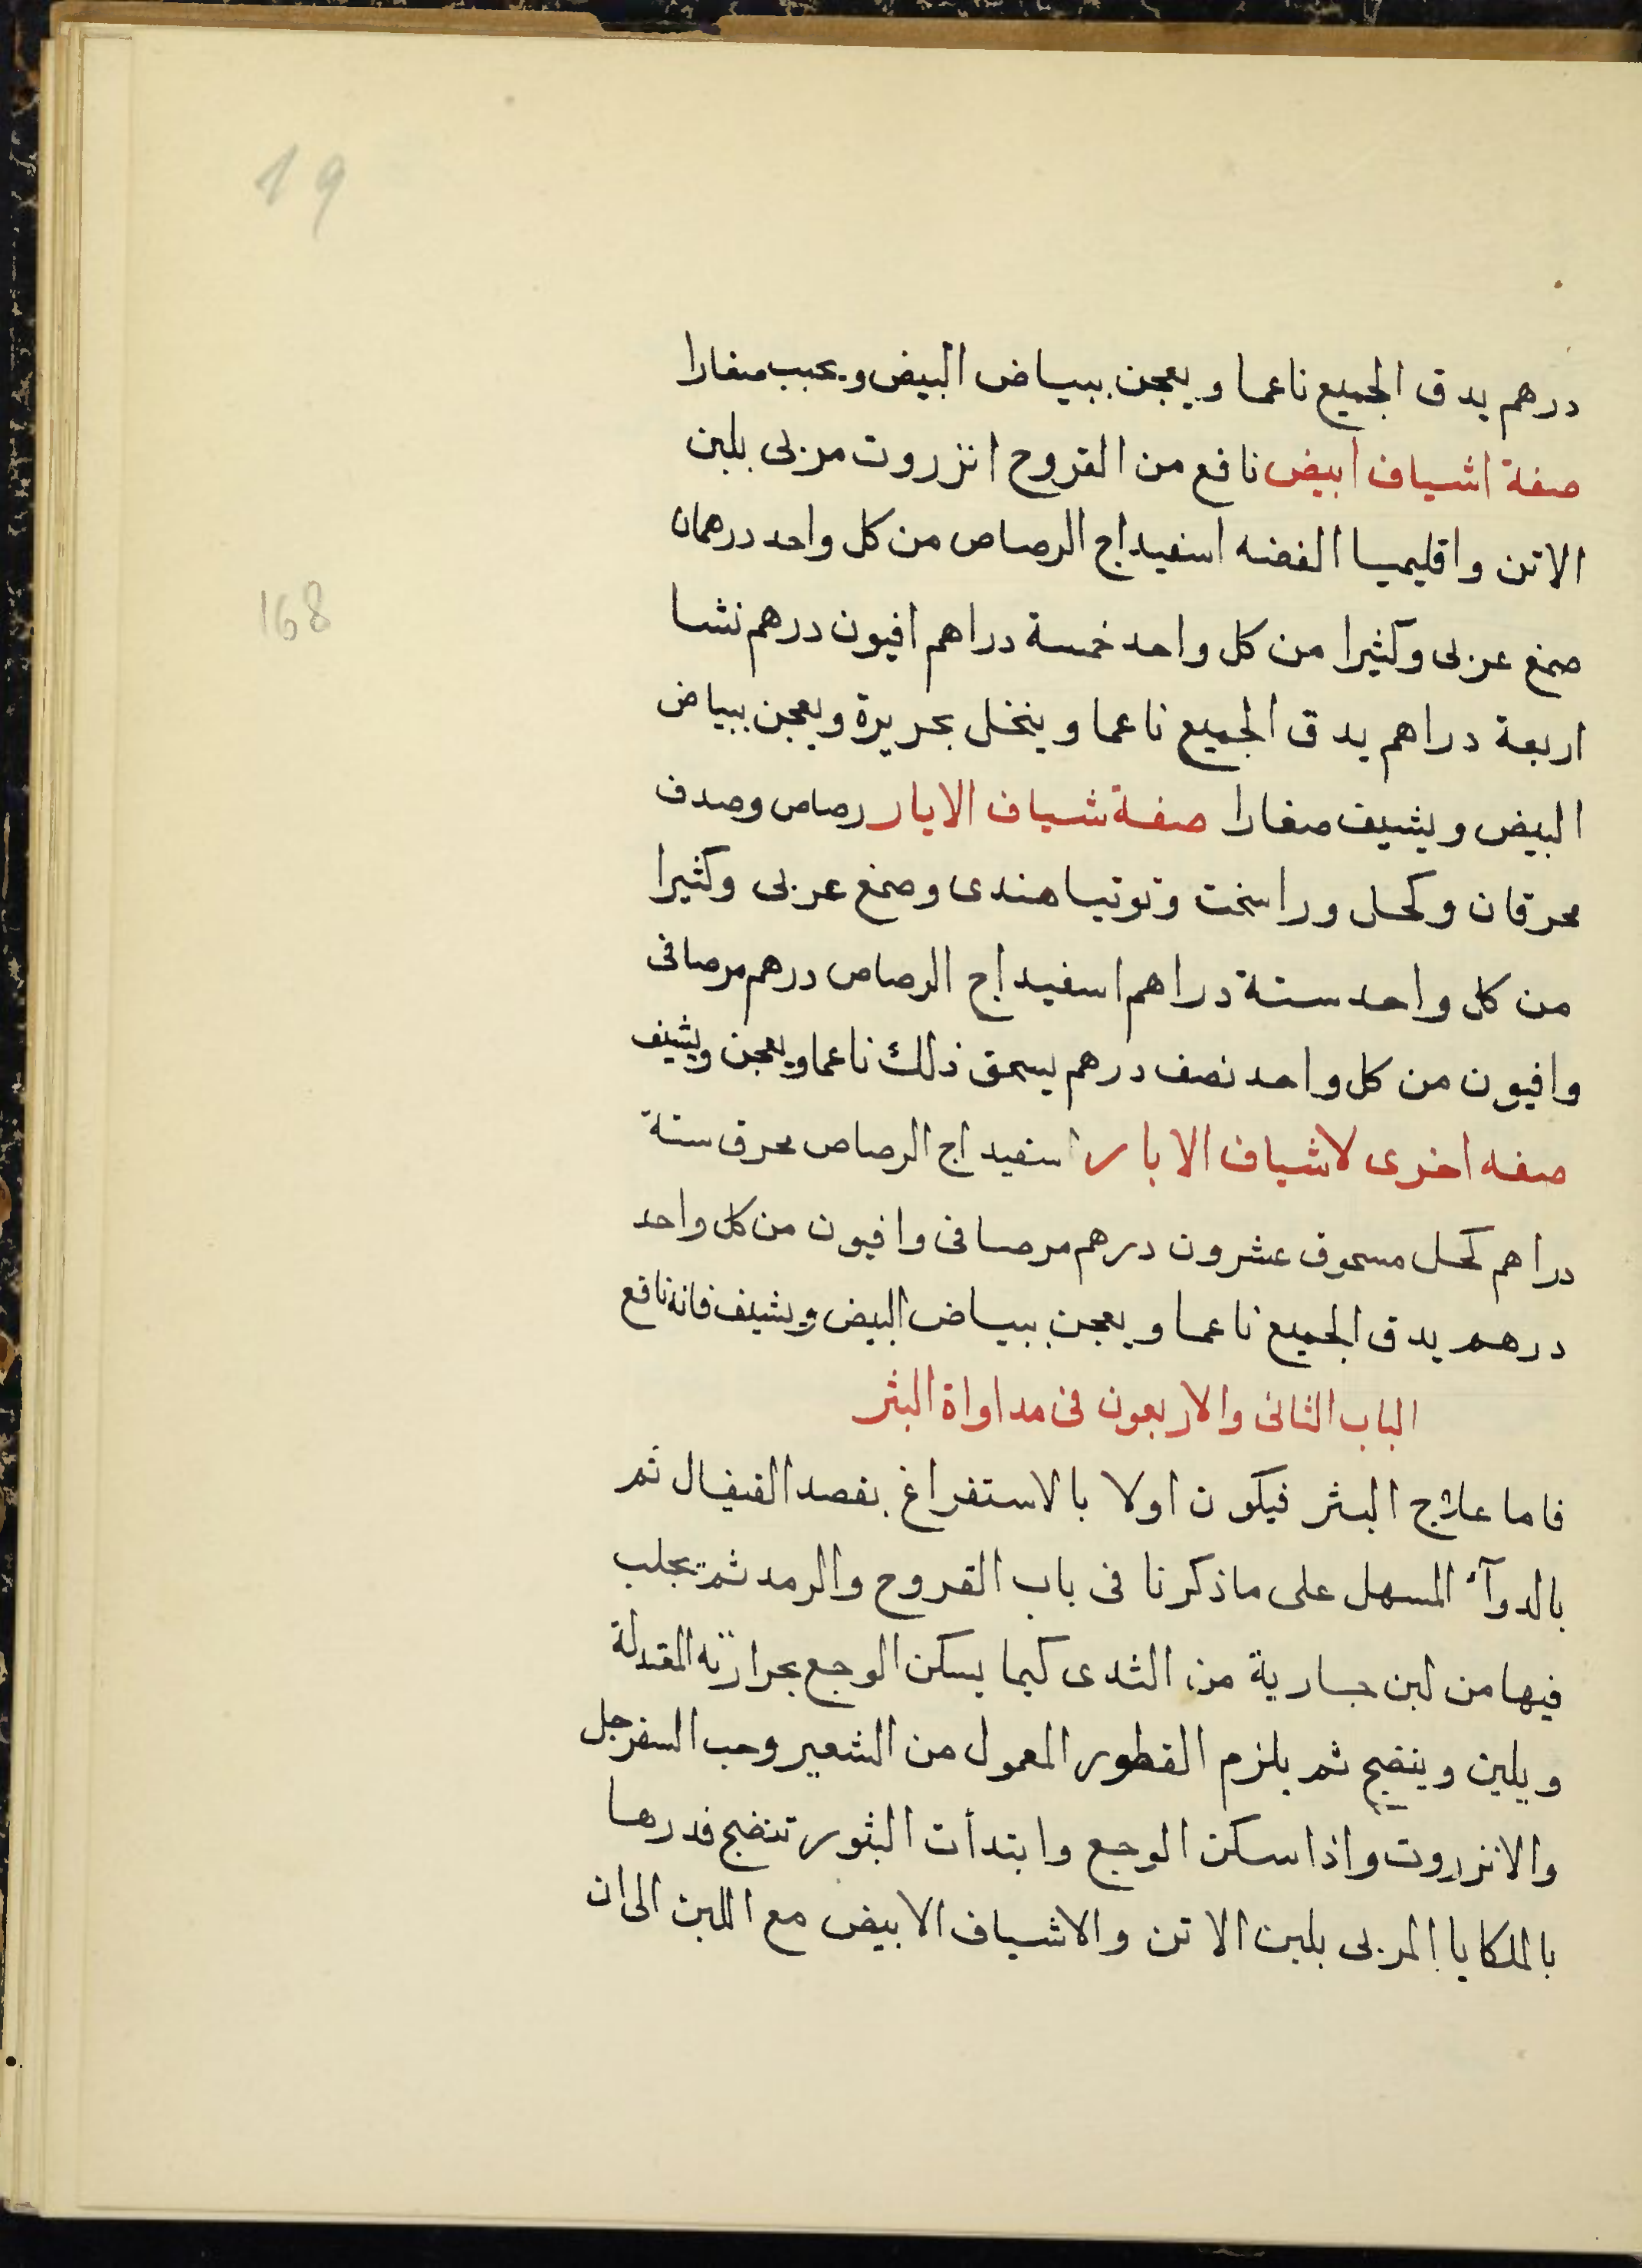 19
درهم يدق الجميع ناعما ويعجن ببياض البيض ويحبب صغارا
صفة اشياف ابيض نافع من القروح انزروت مربى بلبن
الاتن واقليميا الفضه اسفيداج الرصاص من كل واحد درهمان
168
صمغ عربى وكثيرا من كل واحد خمسة دراهم افيون درهم نشا
اربعة دراهم يدق الجميع ناعما وينخل بحريرة ويعجن ببياض
البيض ويشيف صغارا صفة شياف الايار رصاص وصدف
محرقان وكحل وراسخت وتوتيا هندى وصمغ عربى وكثيرا
من كل واحد ستة دراهم اسفيداج الرصاص درهم مرصافى
وافيون من كل واحد نصف درهم يسحق ذلك ناعما ويعجن ويشيف
صفه اخرى لاشياف الابار اسفيداج الرصاص محرق ستة
دراهم كحل مسحوق عشرون درهم مرصافى وافيون من كل واحد
درهم يدق الجميع ناعما ويعجن ببياض البيض ويشيف فانه نافع
الباب الثانى والاربعون فى مداواة البثر
فاما علاج البثر فيكون اولا بالاستفراغ بفصد القيفال ثم
بالدوآء المسهل على ما ذكرنا فى باب القروح والرمد ثم تحلب
فيها من لبن جارية من الثدى كيما يسكن الوجع بحرارته المقتدلة
ويلين وينضج ثم يلزم القطور المعمول من الشعير وحب السفرجل
والانزروت واذا سكن الوجع وابتدأت البثور تنضج فدرها
بالملكايا المربى بلبن الاتن والاشياف الابيض مع اللبن الى ان